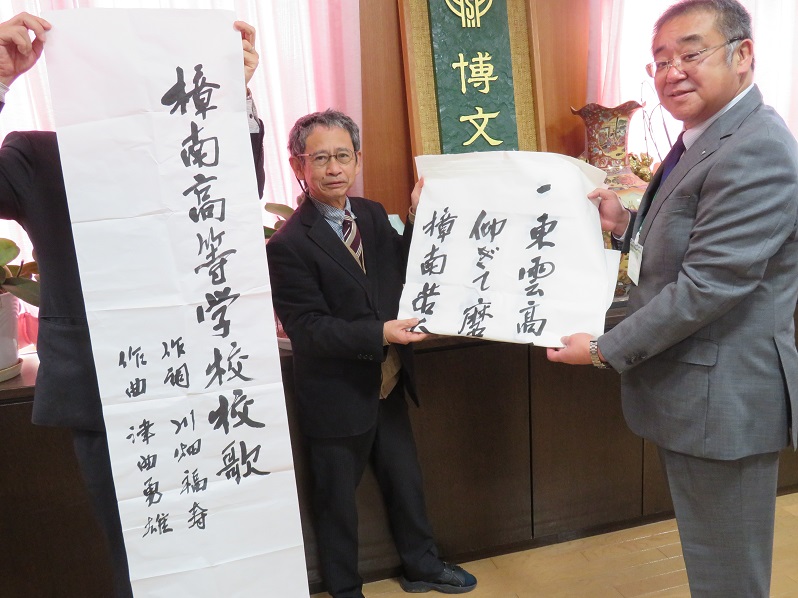 樟南高等学校校歌
作詞 川畑福寿
作曲 津曲勇雄
博文
一 東雲高
仰ぎて磨
樟南